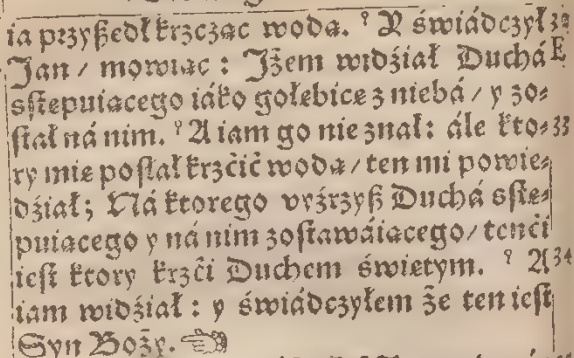 ia przyßedł krzcząc wodą. ⁹ Y świádczył 32
Jan / mowiąc : Jżem widźiał Duchá E
sstępuiącego iáko gołębicę z niebá / y zo⸗
stał ná nim. ⁹ A iam go nie znał: ále kto⸗ 33
ry mię posłał krzćić wodą / ten mi powie⸗
dźiał; Ná ktorego vyźrzyß Duchá sstę⸗
puiącego y ná nim zostawáiącego / tenći
iest ktory krzći Duchem świętym. ⁹ A 34
iam widźiał : y świádczyłem że ten iest
Syn Boży. ☜